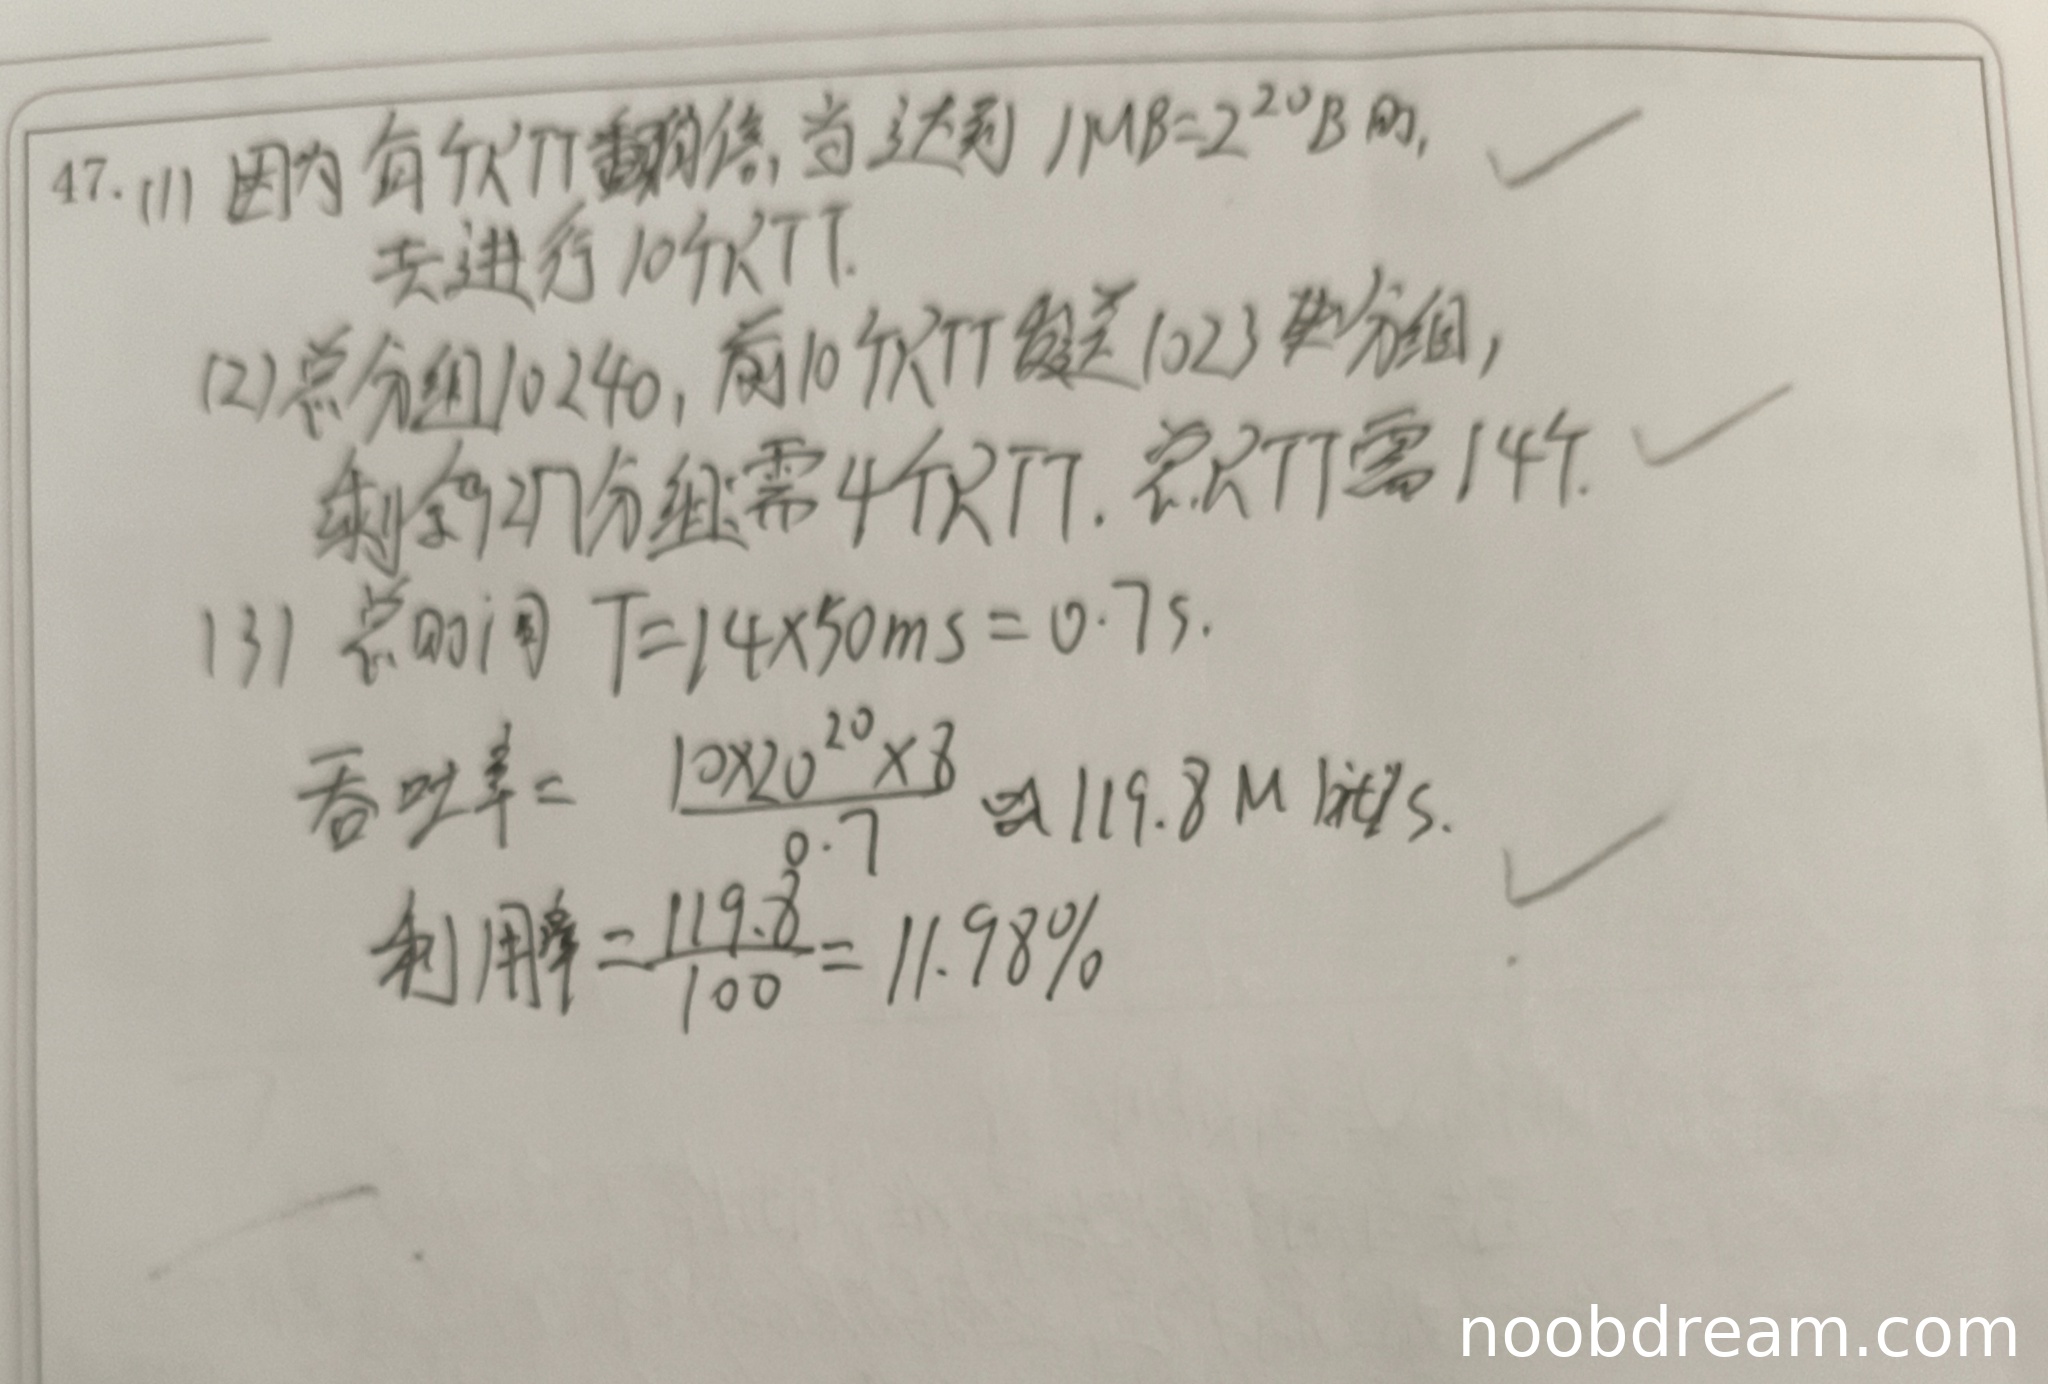 47. (1) 因为每个RTT翻倍,当达到 1MB=2^20B时,
共进行10个RTT.
(2) 总分组10240, 前10个RTT发送1023个分组,
剩余9217分组需4个RTT. 总RTT需14个.
(3) 总时间 T=14×50ms=0.7s.
吞吐率= 10×20^20×8 / 0.7 ≈ 119.8 M bit/s.
利用率= 119.8 / 100 = 11.98%
noobdream.com